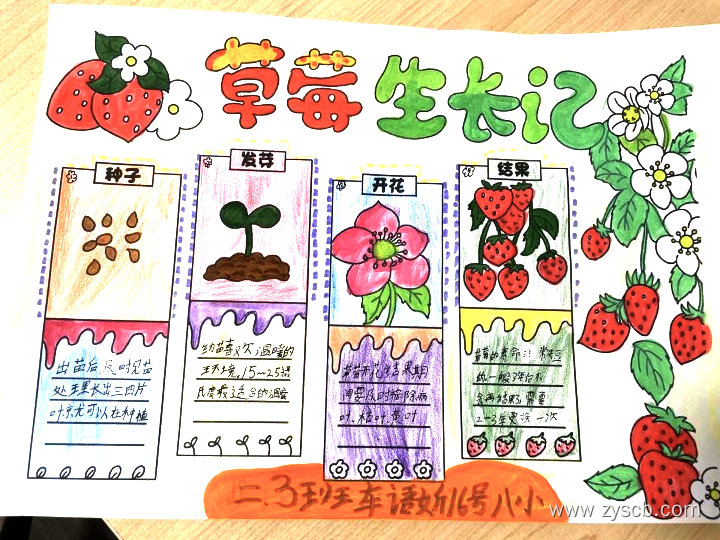 草莓生长记
种子
出苗后及时见苗
处 长出三四片
叶 尤可以在种植
发芽
幼苗喜欢温暖的
环境,15~25摄
氏度最适合的温度
开花
草莓开花结果期
需要及时摘除病
叶、枯叶、黄叶
结果
草莓的寿命
统一般
会再结果,需要
2-3年更换一次
二.3班 车语 16号 八小
www.zyscb.com